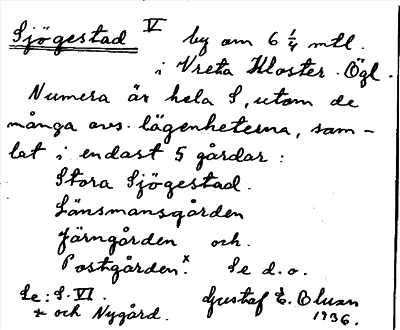 Sjögestad V by om 6 1/4 mtl.
i Vreta Kloster. Ögl.
Numera är hela S, utom de
många avs. lägenheterna, sam-
lat i endast 5 gårdar:
Stora Sjögestad.
Länsmansgården
Järngården och
Postgården.x Se d.o.
Se: S. VI.
x och Nygård.
Gustaf E. Olsson
1936.